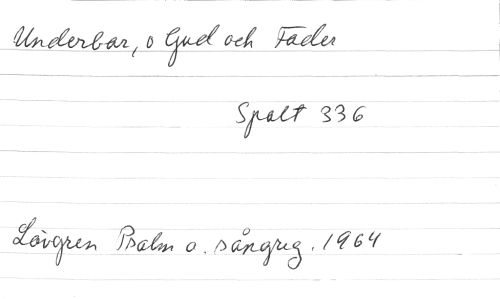 Underbar, o Gud och Fader
Spalt 336
Lövgren Psalm o. sångreg. 1964